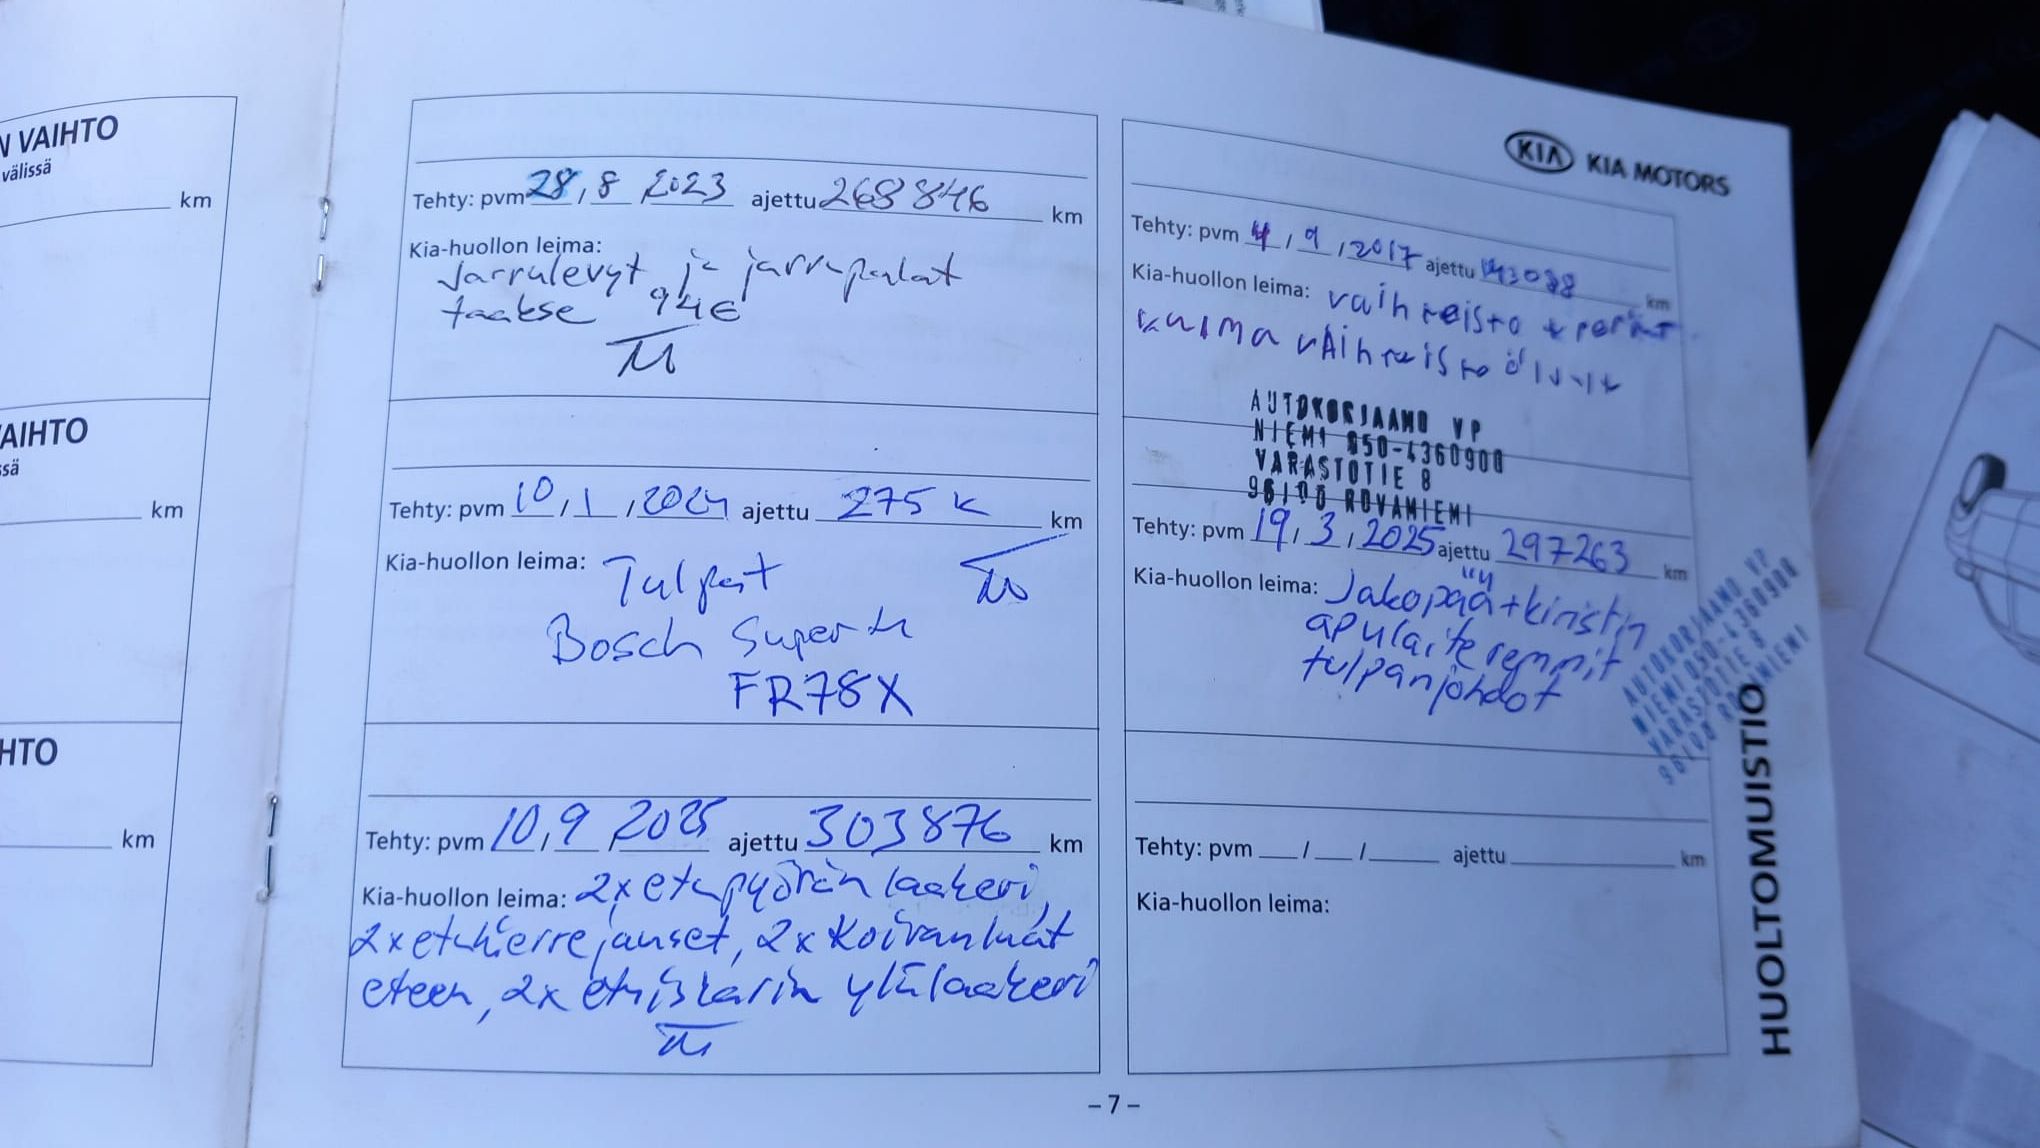 N VAIHTO
välissä
km
AIHTO
ssä
km
HTO
km
Tehty: pvm 28 / 8 / 2023 ajettu 268 846 km
Kia-huollon leima:
Jarrulevyt ja jarrupalat
taakse 94€
Tehty: pvm 10 / 1 / 2024 ajettu 275 K km
Kia-huollon leima: Tulpat
Bosch Super 4
FR78X
Tehty: pvm 10 / 9 / 2025 ajettu 303876 km
Kia-huollon leima: 2x etupyörän laakeri,
2x etukierrejouset, 2x Koiranluut
eteen, 2x etuiskarin ylälaakeri
KIA KIA MOTORS
Tehty: pvm 4 / 9 / 2017 ajettu 143088 km
Kia-huollon leima: vaihteisto +
vaihteisto öljyt
AUTOKORJAAMO VP
NIEMI 050-4360900
VARASTOTIE 8
96100 ROVANIEMI
Tehty: pvm 19 / 3 / 2025 ajettu 297263 km
Kia-huollon leima: Jakopää + kiristin
apulaite remmit
tulpanjohdot
AUTOKORJAAMO VP
NIEMI 050-4360900
VARASTOTIE 8
96100 ROVANIEMI
Tehty: pvm __ / __ / ____ ajettu ____ km
Kia-huollon leima:
HUOLTOMUISTIO
– 7 –